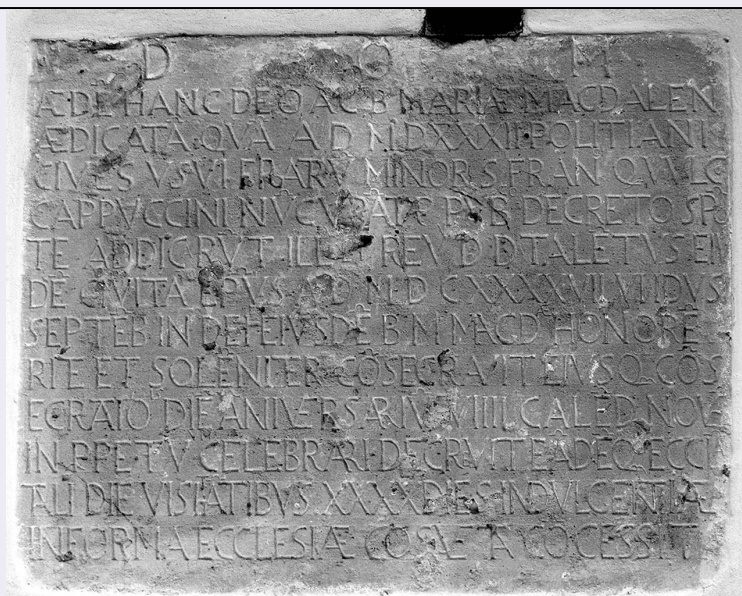 D O M
ÆDĒ HANC DEO AC B MARIÆ MAGDALEN
ÆDICATA QVA A D M.D.XXXII POLITIANI
CIVES VSVI FRATRV MINOR S. FRAN QVI VLG
CAPPVCCINI NVCVPATÆ PVB DECRETO SPŌ
TE ADDICRVT ILL ET REV D D TALĒTVS EIV
DE CIVITA EPVS A D M D C XXXXVII VII IDVS
SEPTEB IN DEI EIVSDĒ B M MAGD HONORĒ
RITE ET SOLĒNITER CŌSECRAVIT EIVSQ CŌS
ECRATŌ DIĒ ANIVERSARIV VIIII CALĒD NOV
IN PPETV CELEBRARI DECRVIT EADEQ ECCL
TALI DIE VISITATIBVS XXXX DIES INDVLGENTIÆ
IN FORMA ECCLESIÆ CŌSVETA CŌCESSIT